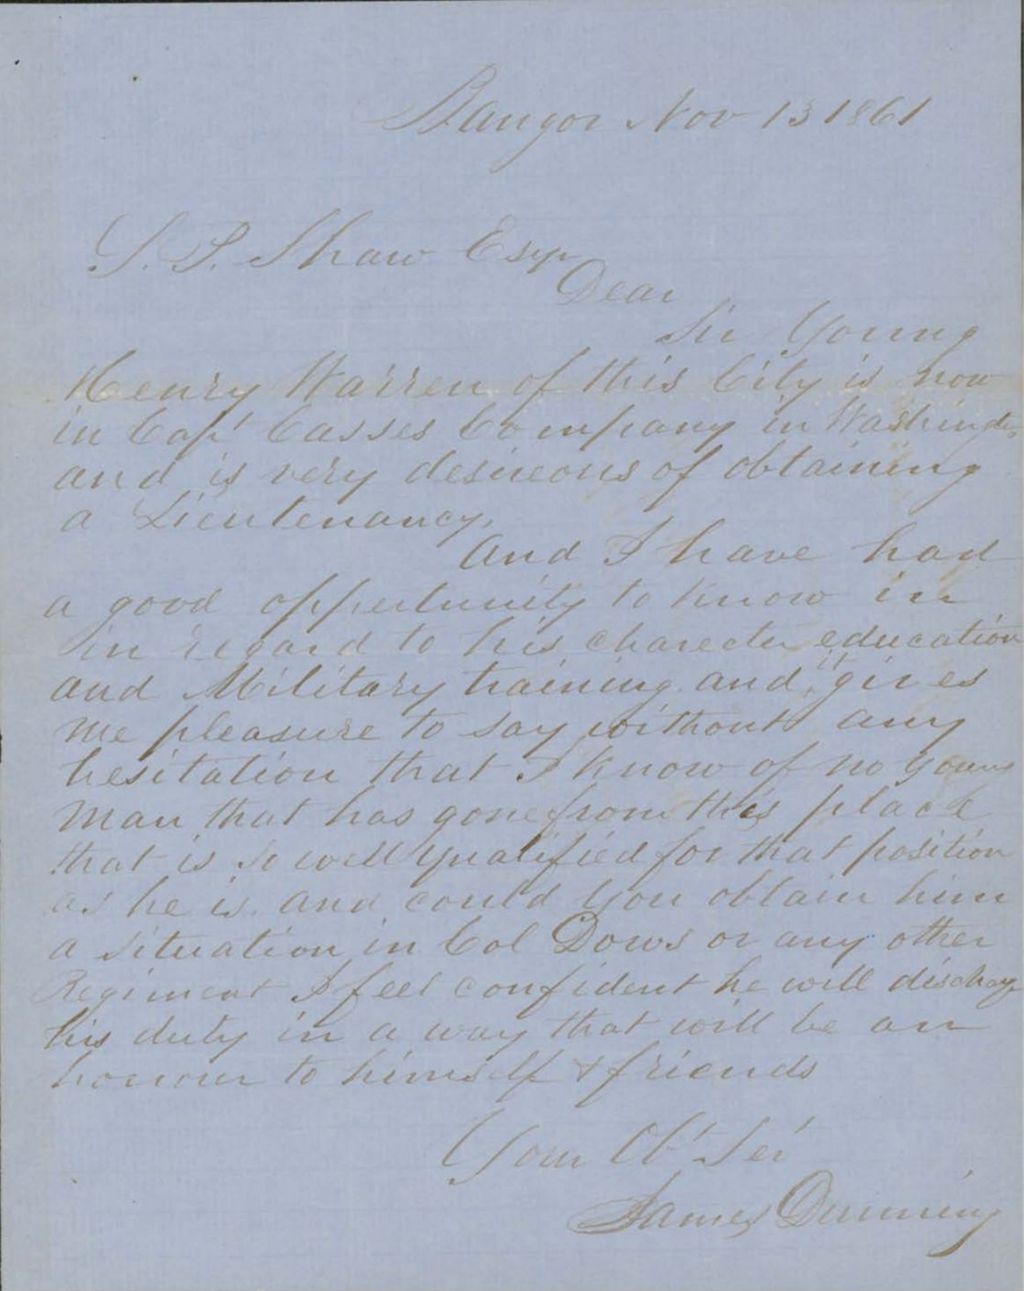 Bangor Nov 13 1861
S. P. Shaw Esqr
Dear
Sir Young
Henry Warren of this City is now
in Capt Casses Company in Washington
and is very desireous of obtaining
a Lieutenancy,
And I have had
a good oppertunity to know in
in regard to his charecter education
and Military training and it gives
me pleasure to say without any
hesitation that I know of no young
man that has gone from this place
that is so well qualified for that position
as he is. and could you obtain him
a situation in Col Dows or any other
Regiment I feel confident he will discharg
his duty in a way that will be an
honour to himself & friends
Your Obt Ser
James Dunning